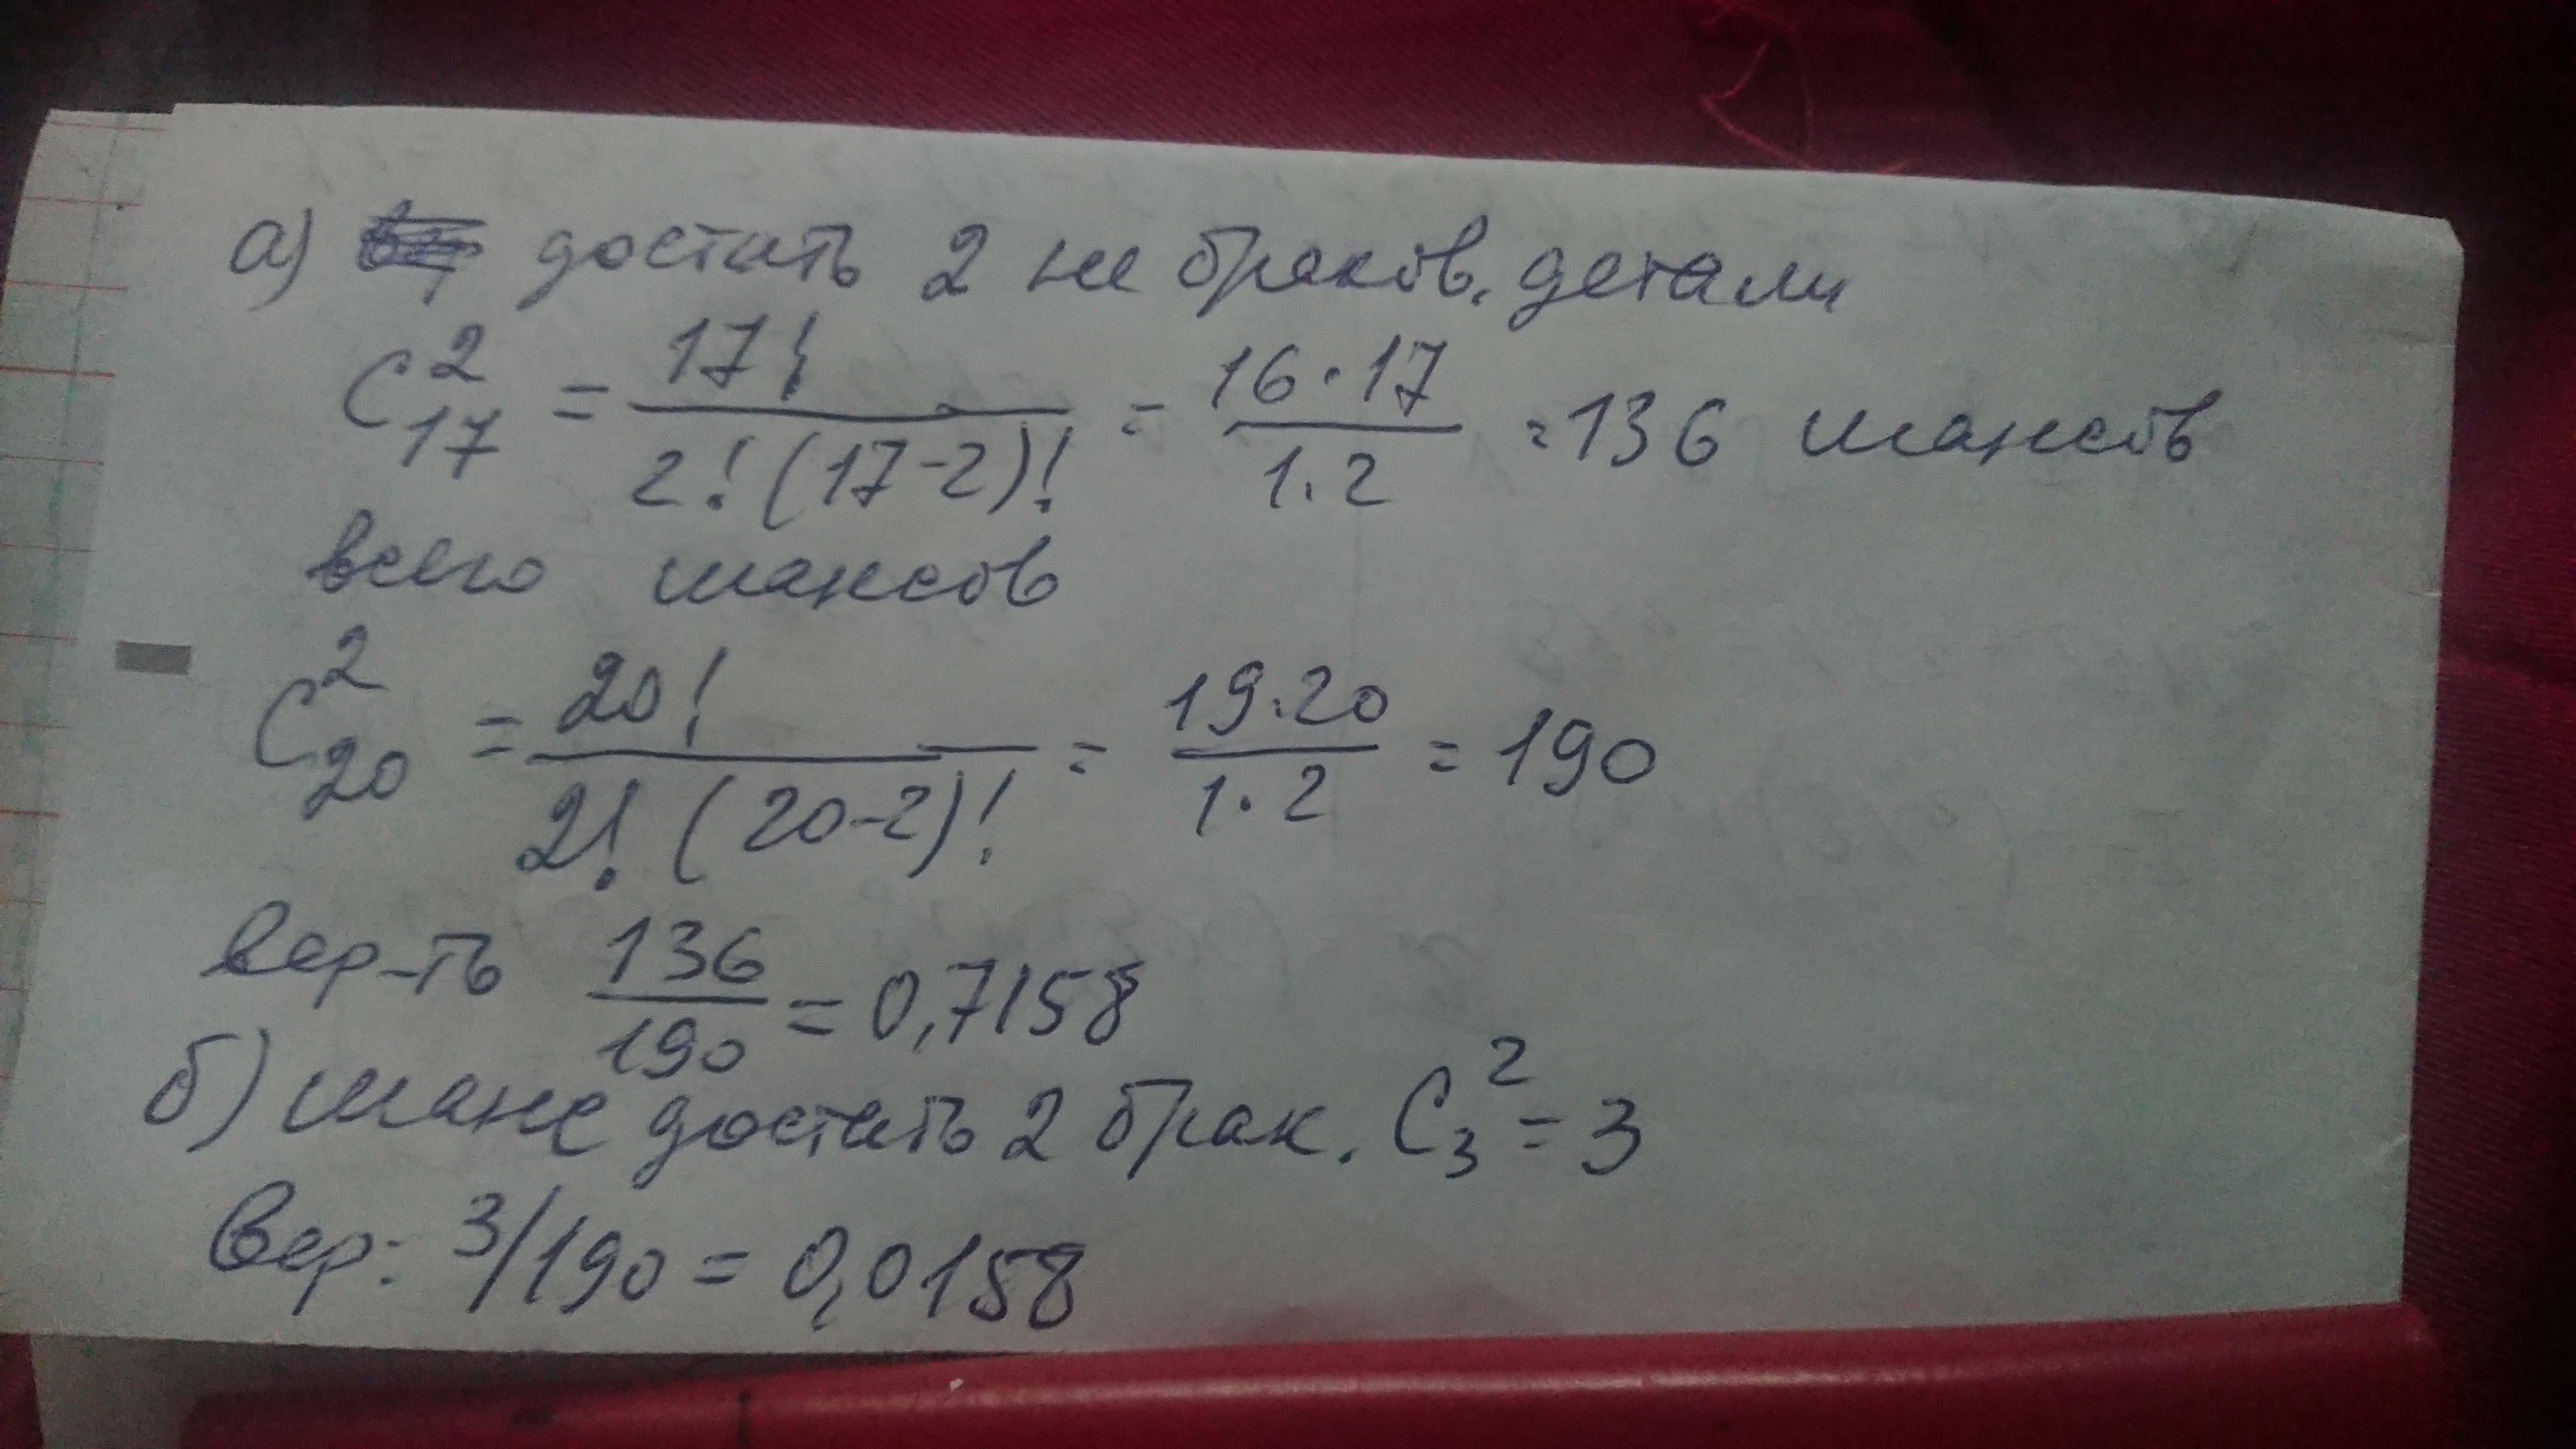 а) достать 2 не браков. детали
C²₁₇ = 17! / 2!(17-2)! = 16·17 / 1·2 = 136 шансов
всего шансов
C²₂₀ = 20! / 2!(20-2)! = 19·20 / 1·2 = 190
вер-ть 136/190 = 0,7158
б) шанс достать 2 брак. C²₃ = 3
Вер: 3/190 = 0,0158